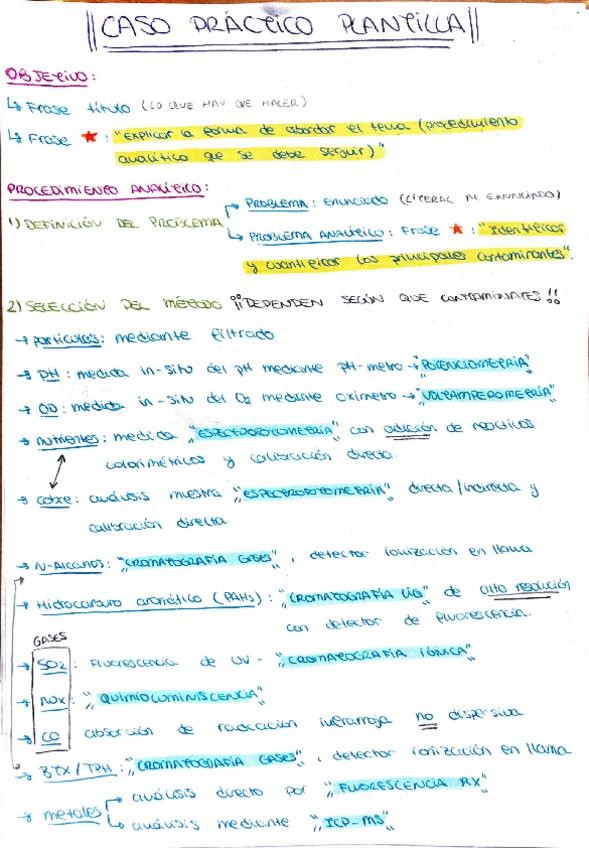 CASO PRÁCTICO PLANTILLA
OBJETIVO:
↳ Frase título (LO QUE HAY QUE HACER)
↳ Frase ★: "explicar la forma de abordar el tema (procedimiento
analítico que se debe seguir)"
PROCEDIMIENTO ANALÍTICO:
1) DEFINICIÓN DEL PROBLEMA
→ PROBLEMA: ENUNCIADO (LITERAL AL ENUNCIADO)
↳ PROBLEMA ANALÍTICO: Frase ★: "Identificar
y cuantificar los principales contaminantes".
2) SELECCIÓN DEL MÉTODO ¡¡DEPENDEN SEGÚN QUE CONTAMINATES!!
→ partículas: mediante filtrado
→ pH: medida in-situ del pH mediante pH-metro → "POTENCIOMETRÍA"
→ OD: medida in-situ del O2 mediante oxímetro → "VOLTAMPEROMETRÍA"
→ nutrientes: medida "ESPECTROFOTOMETRÍA" con adición de reactivos
colorimétricos y calibración directa.
→ cobre: análisis muestra "ESPECTROFOTOMETRÍA" directa/indirecta y
calibración directa.
→ N-Alcanos: "CROMATOGRAFÍA GASES", detector ionización en llama
→ Hidrocarburo aromático (PAHs): "CROMATOGRAFÍA LÍQ" de alta resolución
con detector de fluorescencia.
GASES
→ SO2: Fluorescencia de UV - "CROMATOGRAFÍA IÓNICA"
→ NOX: "QUIMIOLUMINISCENCIA"
→ CO absorción de radiación infrarroja no dispersiva
→ BTX/TPH: "CROMATOGRAFÍA GASES", detector ionización en llama
→ metales → análisis directo por "FLUORESCENCIA RX"
↳ análisis mediante "ICP-MS"